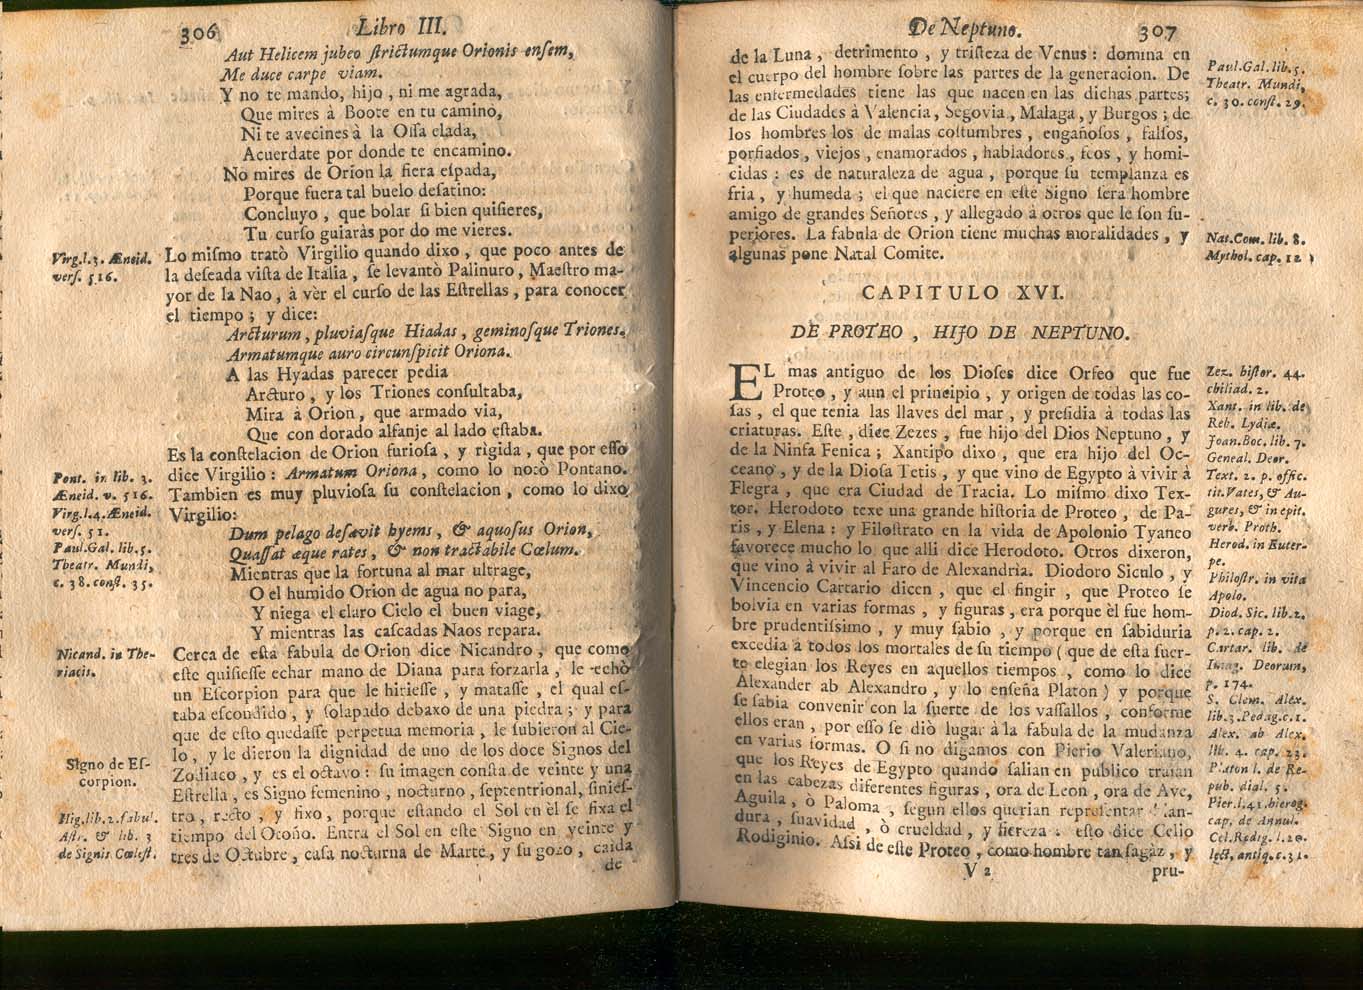 306 Libro III.
Aut Helicem jubeo ſtrictumque Orionis enſem,
Me duce carpe viam.
Y no te mando, hijo, ni me agrada,
Que mires à Boote en tu camino,
Ni te avecines à la Oſſa elada,
Acuerdate por donde te encamino.
No mires de Orion la fiera eſpada,
Porque fuera tal buelo deſatino:
Concluyo, que bolar ſi bien quiſieres,
Tu curſo guiaràs por do me vieres.
Virg.l.3. Æneid.
verſ. 516.
Lo miſmo tratò Virgilio quando dixo, que poco antes de
la deſeada viſta de Italia, ſe levantò Palinuro, Maeſtro ma-
yor de la Nao, à vèr el curſo de las Eſtrellas, para conocer
el tiempo; y dice:
Arcturum, pluviaſque Hiadas, geminoſque Triones.
Armatumque auro circunſpicit Oriona.
A las Hyadas parecer pedia
Arcturo, y los Triones conſultaba,
Mira à Orion, que armado via,
Que con dorado alfanje al lado eſtaba.
Es la conſtelacion de Orion furioſa, y rigida, que por eſſo
dice Virgilio: Armatum Oriona, como lo notò Pontano.
Tambien es muy pluvioſa ſu conſtelacion, como lo dixo
Virgilio:
Pont. in lib. 3.
Æneid. v. 516.
Virg.l.4. Æneid.
verſ. 51.
Paul.Gal. lib.5.
Theatr. Mundi,
c. 38. conſt. 35.
Dum pelago deſævit hyems, & aquoſus Orion,
Quaſſatæque rates, & non tractabile Cœlum.
Mientras que la fortuna al mar ultrage,
O el humido Orion de agua no para,
Y niega el claro Cielo el buen viage,
Y mientras las caſcadas Naos repara.
Nicand. in The-
riacis.
Cerca de eſta fabula de Orion dice Nicandro, que como
eſte quiſieſſe echar mano de Diana para forzarla, le echò
un Eſcorpion para que le hirieſſe, y mataſſe, el qual eſ-
taba eſcondido, y ſolapado debaxo de una piedra; y para
que de eſto quedaſſe perpetua memoria, le ſubieron al Cie-
lo, y le dieron la dignidad de uno de los doce Signos del
Zodiaco, y es el octavo: ſu imagen conſta de veinte y una
Eſtrella, es Signo femenino, nocturno, ſeptentrional, ſinieſ-
tro, recto, y fixo, porque eſtando el Sol en èl ſe fixa el
tiempo del Otoño. Entra el Sol en eſte Signo en veinte y
tres de Octubre, caſa nocturna de Marte, y ſu gozo, caida
de
Signo de Eſ-
corpion.
Hig.lib.2.fabul.
Aſtr. & lib. 3
de Signis Cœleſt.
De Neptuno. 307
de la Luna, detrimento, y triſteza de Venus: domina en
el cuerpo del hombre ſobre las partes de la generacion. De
las enfermedades tiene las que nacen en las dichas partes;
de las Ciudades à Valencia, Segovia, Malaga, y Burgos; de
los hombres los de malas coſtumbres, engañoſos, falſos,
porfiados, viejos, enamorados, habladores, feos, y homi-
cidas: es de naturaleza de agua, porque ſu templanza es
fria, y humeda; el que naciere en eſte Signo ſera hombre
amigo de grandes Señores, y allegado à otros que le ſon ſu-
periores. La fabula de Orion tiene muchas moralidades, y
algunas pone Natal Comite.
Paul.Gal. lib.5.
Theatr. Mundi,
c. 30. conſt. 29.
Nat.Com. lib. 8.
Mythol. cap. 12
CAPITULO XVI.
DE PROTEO, HIJO DE NEPTUNO.
EL mas antiguo de los Dioſes dice Orfeo que fue
Proteo, y aun el principio, y origen de todas las co-
ſas, el que tenia las llaves del mar, y preſidia à todas las
criaturas. Eſte, dice Zezes, fue hijo del Dios Neptuno, y
de la Ninfa Fenica; Xantipo dixo, que era hijo del Oc-
ceano, y de la Dioſa Tetis, y que vino de Egypto à vivir à
Flegra, que era Ciudad de Tracia. Lo miſmo dixo Tex-
tor. Herodoto texe una grande hiſtoria de Proteo, de Pa-
ris, y Elena: y Filoſtrato en la vida de Apolonio Tyaneo
favorece mucho lo que alli dice Herodoto. Otros dixeron,
que vino à vivir al Faro de Alexandria. Diodoro Siculo, y
Vincencio Cartario dicen, que el fingir, que Proteo ſe
bolvia en varias formas, y figuras, era porque èl fue hom-
bre prudentiſſimo, y muy ſabio, y porque en ſabiduria
excedia à todos los mortales de ſu tiempo (que de eſta ſuer-
te elegian los Reyes en aquellos tiempos, como lo dice
Alexander ab Alexandro, y lo enſeña Platon) y porque
ſe ſabia convenir con la ſuerte de los vaſſallos, conforme
ellos eran, por eſſo ſe diò lugar à la fabula de la mudanza
en varias formas. O ſi no digamos con Pierio Valeriano,
que los Reyes de Egypto quando ſalian en publico traìan
en las cabezas diferentes figuras, ora de Leon, ora de Ave,
Aguila, ò Paloma, ſegun ellos querian repreſentar blan-
dura, ſuavidad, ò crueldad, y fiereza: eſto dice Celio
Rodiginio. Aſsi de eſte Proteo, como hombre tan ſagàz, y
V 2 pru-
Zez. hiſtor. 44.
chiliad. 2.
Xant. in lib. de
Reb. Lydiæ.
Joan.Boc. lib. 7.
Geneal. Deor.
Text. 2. p. offic.
tit. Vates, & Au-
gures, & in epit.
verb. Proth.
Herod. in Euter-
pe.
Philoſtr. in vita
Apolo.
Diod. Sic. lib.2.
p. 2. cap. 2.
Cartar. lib. de
Imag. Deorum,
p. 174.
S. Clem. Alex.
lib.3.Pedag.c.1.
Alex. ab Alex.
lib. 4. cap. 23.
Platon l. de Re-
pub. dial. 5.
Pier.l.41.hierog.
cap. de Annul.
Cel.Rodig. l.20.
lect. antiq. c.31.